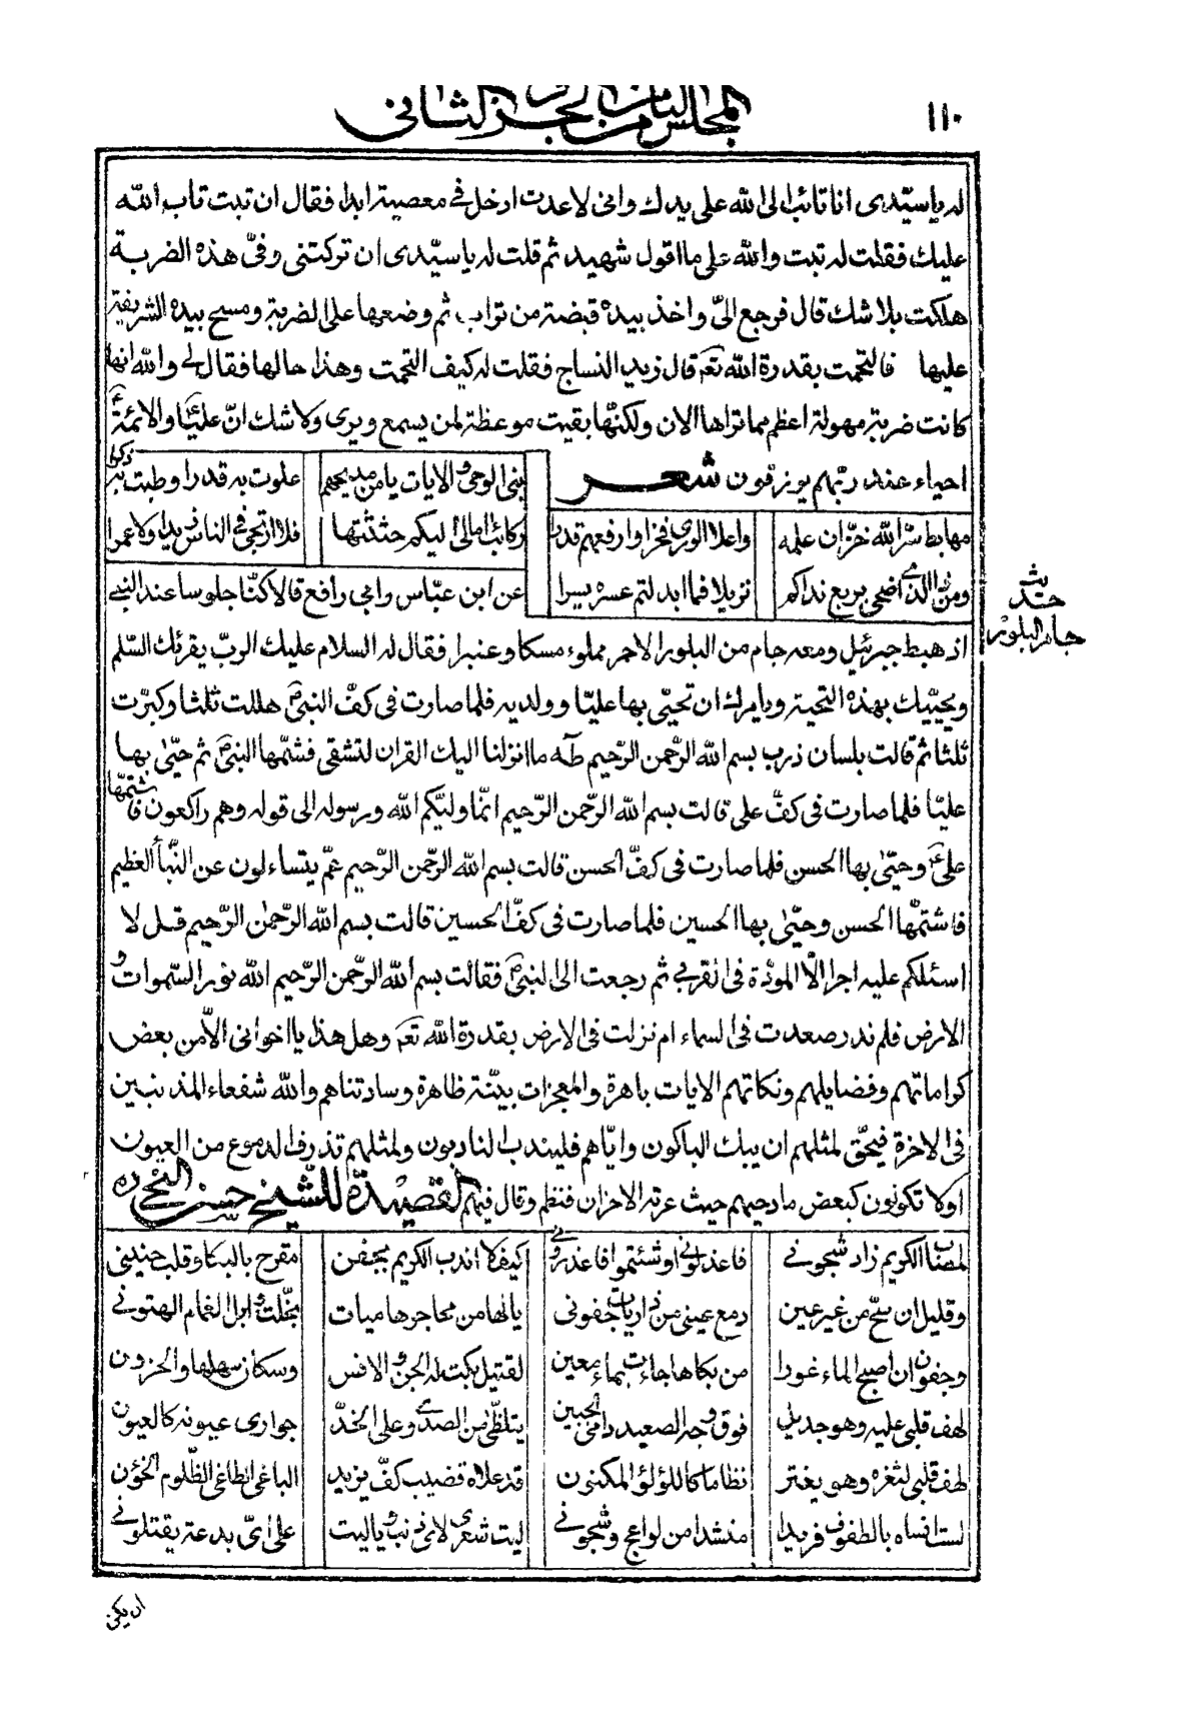 ١١٠
المجلس الثامن من الجزء الثاني
له يا سيّدى انا تائب الى الله على يدك وانى لا عدت ادخل في معصية ابدا فقال ان تبت تاب الله
عليك فقلت له تبت والله على ما اقول شهيد ثم قلت له يا سيّدى ان تركتنى وفىّ هذه الضربة
هلكت بلا شك قال فرجع الىّ واخذ بيده قبضة من تراب ثم وضعها على الضربة ومسح بيده الشريفة
عليها فالتحمت بقدرة الله تعم قال زيد النساج فقلت له كيف التحمت وهذا حالها فقال لى والله انها
كانت ضربة مهولة اعظم مما تراها الان ولكنّها بقيت موعظة لمن يسمع ويرى ولا شك انّ عليّا والائمة ع
احياء عند ربّهم يرزقون شعر
بنى الوحى والايات يا من مديحهم علوت به قدرا وطبت به ذكرا
مهابط سرّ الله خزّان علمه واعلا الورى فخرا وارفعهم قدرا
ركائب امالى اليكم حثثتها فلا ارتجى فى الناس زيدا ولا عمرا
ومن ذا الذى اضحى بربع نداكم نزيلا فما ابدلتم عسره يسرا
عن ابن عبّاس وابى رافع قالا كنّا جلوسا عند النبى
حديث
جام البلور
اذ هبط جبرئيل ومعه جام من البلور الاحمر مملوء مسكا وعنبرا فقال له السلام عليك الربّ يقرئك السّلم
ويحيّيك بهذه التحية ويامرك ان تحيّى بها عليّا وولديه فلما صارت فى كفّ النبىّ ص هللت ثلثا وكبّرت
ثلثا ثم قالت بلسان ذرب بسم الله الرّحمن الرّحيم طه ما انزلنا اليك القران لتشقى فشمّها النبى ص ثم حيّى بها
عليّا فلما صارت فى كفّ على قالت بسم الله الرّحمن الرّحيم انّما وليّكم الله ورسوله الى قوله وهم راكعون فاشتمّها
على ع وحيّى بها الحسن فلما صارت فى كفّ الحسن قالت بسم الله الرّحمن الرّحيم عمّ يتساءلون عن النّبأ العظيم
فاشتمّها الحسن وحيّى بها الحسين فلما صارت فى كفّ الحسين قالت بسم الله الرّحمن الرّحيم قل لا
اسئلكم عليه اجرا الّا المودّة فى القربى ثم رجعت الى النبى ص فقالت بسم الله الرّحمن الرّحيم الله نور السّموات و
الارض فلم ندر صعدت فى السماء ام نزلت فى الارض بقدرة الله تعم وهل هذا يا اخوانى الّا من بعض
كراماتهم وفضايلهم ونكاتهم الايات باهرة والمعجزات بيّنة ظاهرة وسادتناهم والله شفعاء المذنبين
فى الاخرة فيحقّ لمثلهم ان يبك الباكون وايّاهم فليندب النادبون ولمثلهم تذرف الدموع من العيون
اولا تكونون كبعض مادحيهم حيث عرته الاحزان فنظم وقال فيهم القصيدة للشيخ حسن النجفى ره
لمصاب الكريم زاد شجونى فاعذلونى او شئتموا فاعذرونى كيف لا اندب الكريم بجفن مقرح بالبكا وقلب حنينى
وقليل ان سحّ من غير عين دمع عينى من ذاريات جفونى يا لها من محاجر هاميات بخّلت وابل الغمام الهتونى
وجفون ان اصبح الماء غورا من بكاها جاءت بماء معين لقتيل بكت له الجن و الانس وسكان سهلها والحزون
لهف قلبى عليه وهو جديل فوق وجه الصعيد دامى الجبين يتلظّى من الصدى وعلى الخدّ جوارى عيونه كالعيون
لهف قلبى لثغره وهو يفتر نظاما كاللؤلؤ المكنون قد علاه قضيب كفّ يزيد الباغى الطاغى الظّلوم الخؤن
لست انساه بالطفوف فريدا منشدا من لواعج وشجونى ليت شعرى لاى ذنب ويا ليت على اىّ بدعة يقتلونى
ان يكن